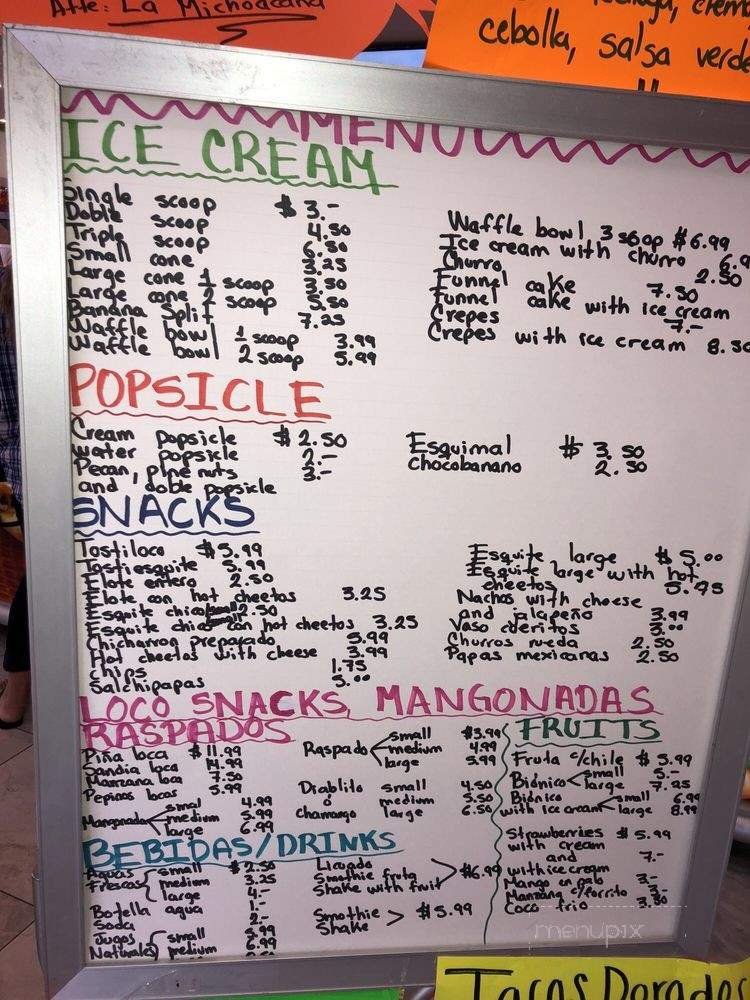 Atte: La Michoacana
cebolla, salsa verde
MENU
ICE CREAM
Single scoop $ 3.-
Doble scoop 4.50
Triple scoop 6.50
Small cone 3.25
Large cone 1 scoop 3.50
Large cone 2 scoop 5.50
Banana Split 7.25
Waffle bowl 1 scoop 3.99
Waffle bowl 2 scoop 5.99
Waffle bowl 3 scoop $6.99
Ice cream with churro 6.9
Churro 2.50
Funnel cake 7.50
Funnel cake with ice cream
Crepes 7.-
Crepes with ice cream 8.50
POPSICLE
Cream Popsicle $ 2.50
water popsicle 2.-
Pecan, pine nuts 3.-
and doble popsicle
Esquimal $ 3.50
Chocobanano 2.50
SNACKS
Tostiloco $5.99
Tostiesquite 5.99
Elote entero 2.50
Elote con hot cheetos 3.25
Esquite chico 2.50
Esquite chico con hot cheetos 3.25
Chicharron preparado 5.99
Hot cheetos with cheese 3.99
chips 1.75
Salchipapas 5.00
Esquite large $ 5.00
Esquite large with hot
cheetos 5.75
Nachos with cheese
and jalapeño 3.99
Vaso 5.00
Churros rueda 2.50
Papas mexicanas 2.50
LOCO SNACKS, MANGONADAS
RASPADOS
Piña loca $11.99
Sandia loca 14.99
Manzana loca 7.50
Pepinos locos 5.99
Mangonada smal 4.99
medium 5.99
large 6.99
Raspado small $3.99
medium 4.99
large 5.99
Diablito small 4.50
o medium 5.50
chamango large 6.50
FRUITS
Fruta c/chile $ 5.99
Bionico small 5.-
large 7.25
Bionico small 6.99
with ice cream large 8.99
Strawberries $ 5.99
with cream
and 7.-
with ice cream
Mango en palo 3.-
Manzana c/forrito 3.-
Coco frio 3.50
BEBIDAS/DRINKS
Aguas small $2.50
Frescas medium 3.25
large 4.-
Botella agua 1.-
Soda 2.-
Jugos small 5.99
Naturales medium 6.99
Licuado
Smothie fruta $6.99
Shake with fruit
Smothie $5.99
Shake
menupix
Tacos Dorados